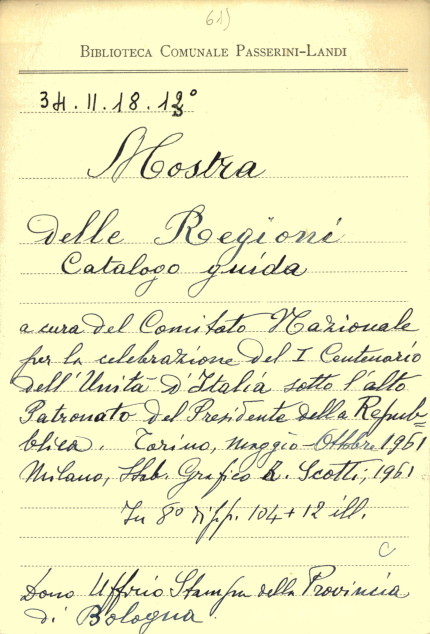 61)
BIBLIOTECA COMUNALE PASSERINI-LANDI
34.II.18.12°
Mostra
delle Regioni
Catalogo guida
a cura del Comitato Nazionale
per la celebrazione del I Centenario
dell'Unità d'Italia sotto l'alto
Patronato del Presidente della Repub=
blica. Torino, maggio-Ottobre 1961
Milano, Stab. Grafico R. Scotti, 1961
In 8° di pp. 104+12 ill.
C
Dono Ufficio Stampa della Provincia
di Bologna